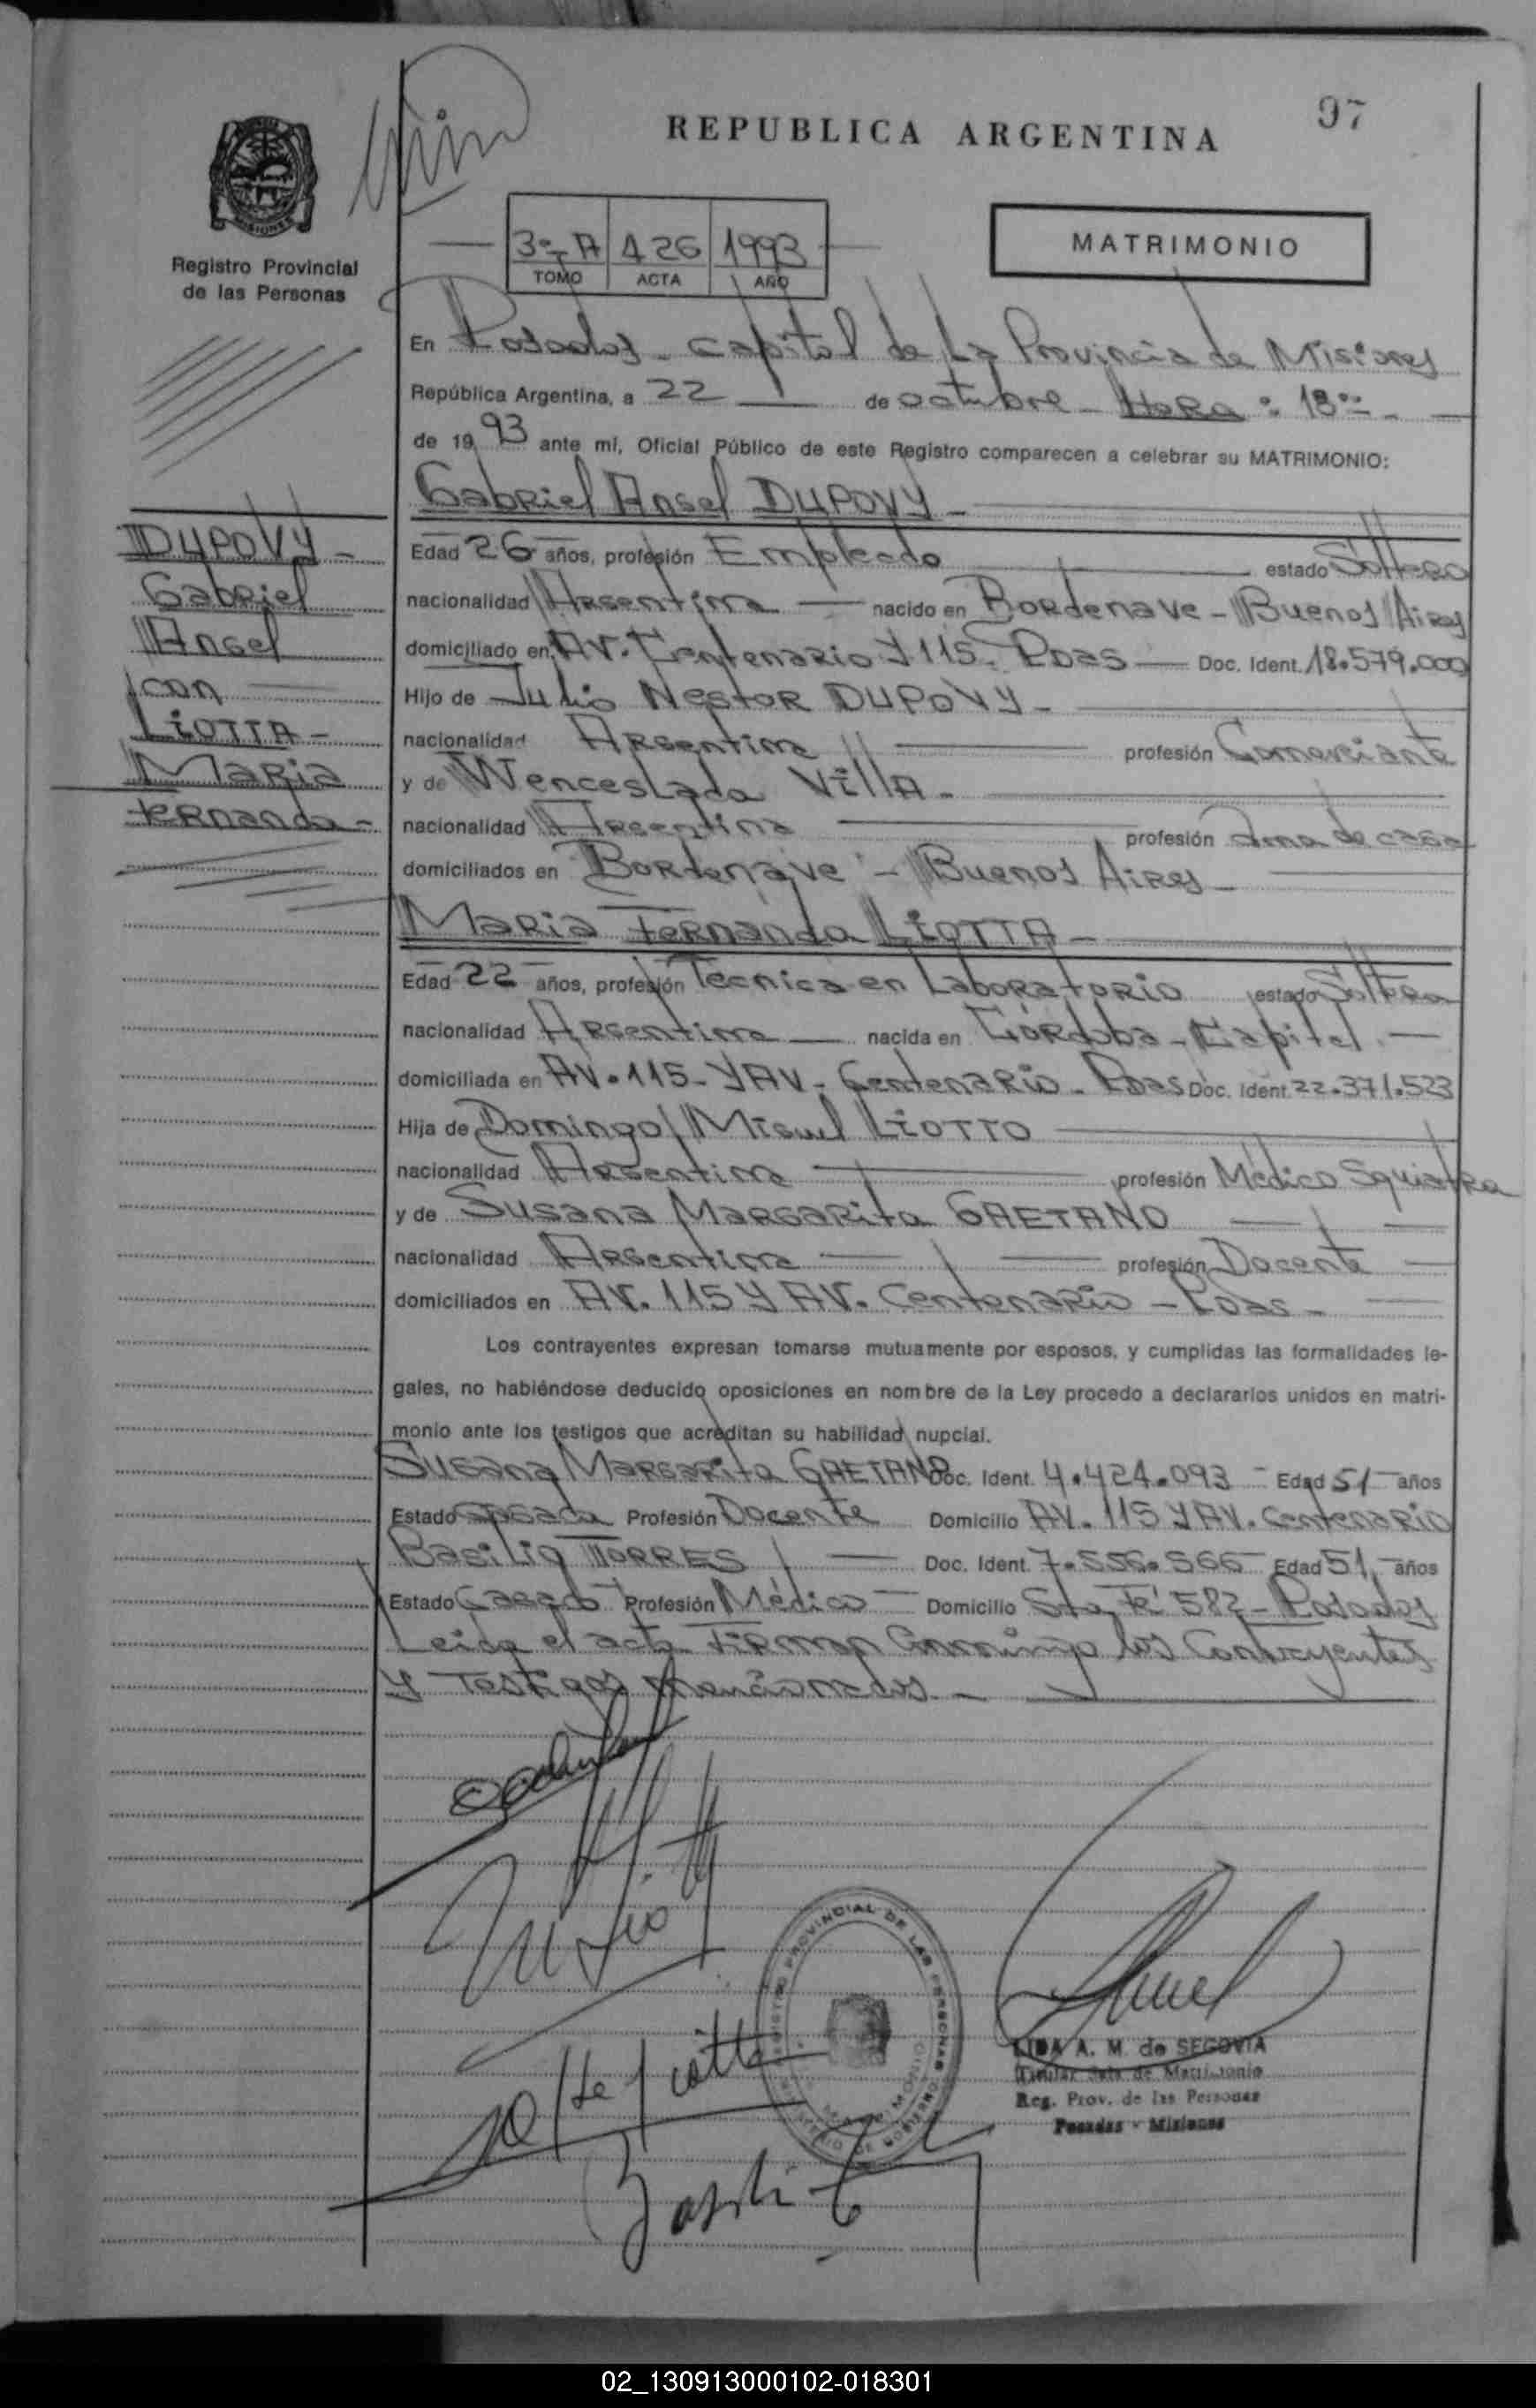 97
REPUBLICA ARGENTINA
Registro Provincial
de las Personas
3º-A 426 1993
TOMO ACTA AÑO
MATRIMONIO
En Posadas - Capital de La Provincia de Misiones
República Argentina, a 22 de octubre - Hora: 18:--
de 1993 ante mi, Oficial Público de este Registro comparecen a celebrar su MATRIMONIO:
Gabriel Angel DUPOVY -
DUPOVY -
Gabriel
Angel
con
LIOTTA -
Maria
Fernanda -
Edad 26 años, profesión Empleado estado Soltero
nacionalidad Argentina nacido en Bordenave - Buenos Aires
domiciliado en AV. Centenario y 115 - Pdas Doc. Ident. 18.579.000
Hijo de Julio Nestor DUPOVY -
nacionalidad Argentina profesión Comerciante
y de Wenceslada Villa -
nacionalidad Argentina profesión Ama de casa
domiciliados en Bordenave - Buenos Aires -
Maria Fernanda LIOTTA -
Edad 22 años, profesión Tecnica en Laboratorio estado Soltera
nacionalidad Argentina nacida en Córdoba - Capital
domiciliada en AV. 115 - y AV - Centenario - Pdas Doc. Ident. 22.371.523
Hija de Domingo Miguel LIOTTO
nacionalidad Argentina profesión Médico Squiatra
y de Susana Margarita GAETANO
nacionalidad Argentina profesión Docente
domiciliados en AV. 115 y AV. Centenario - Pdas -
Los contrayentes expresan tomarse mutuamente por esposos, y cumplidas las formalidades le-
gales, no habiéndose deducido oposiciones en nombre de la Ley procedo a declararlos unidos en matri-
monio ante los testigos que acreditan su habilidad nupcial.
Susana Margarita GAETANO Doc. Ident. 4.424.093 - Edad 51 años
Estado casada Profesión Docente Domicilio AV. 115 y AV. Centenario
Basilio TORRES Doc. Ident. 7.556.566 Edad 51 años
Estado Casado Profesión Médico Domicilio Sta Fé 582 - Posadas
Leida el acta Firman Conmigo los Contrayentes
y Testigos mencionados -
REGISTRO PROVINCIAL DE LAS PERSONAS
LIDA A. M. de SEGOVIA
Titular Sala de Matrimonio
Reg. Prov. de las Personas
Posadas - Misiones
02_130913000102-018301